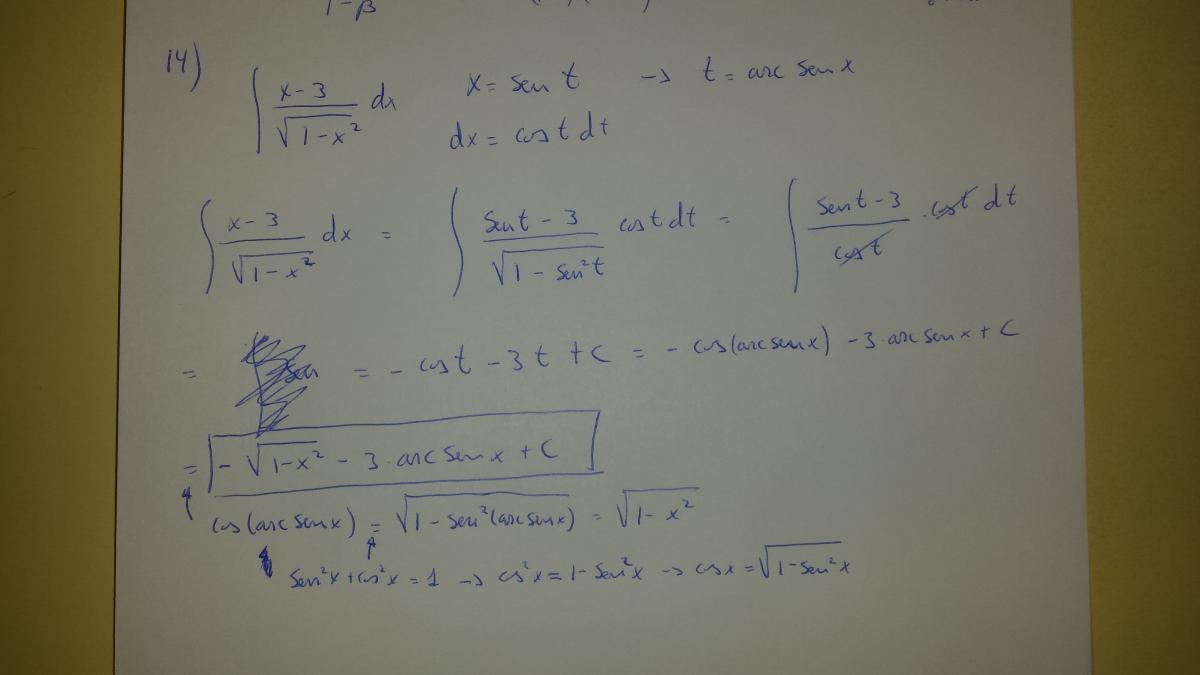 1-β
14) ∫ (x-3)/√(1-x²) dx   x = sen t → t = arc sen x
dx = cos t dt
∫ (x-3)/√(1-x²) dx = ∫ (sen t - 3)/√(1 - sen²t) cos t dt = ∫ (sen t - 3)/cos t · cos t dt
= = - cos t - 3t + C = - cos(arc sen x) - 3·arc sen x + C
= - √(1-x²) - 3·arc sen x + C
cos(arc sen x) = √(1 - sen²(arc sen x)) = √(1 - x²)
sen²x + cos²x = 1 → cos²x = 1 - sen²x → cos x = √(1 - sen²x)